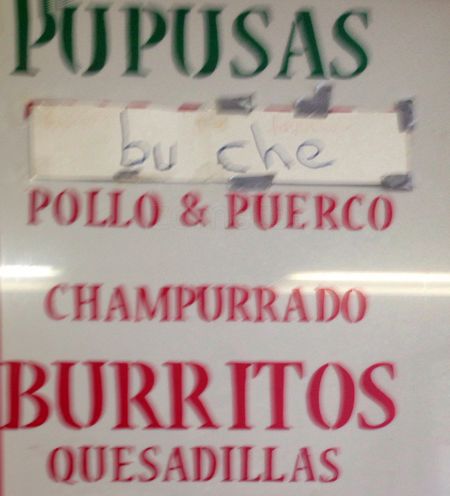 PUPUSAS
bu che
POLLO & PUERCO
CHAMPURRADO
BURRITOS
QUESADILLAS